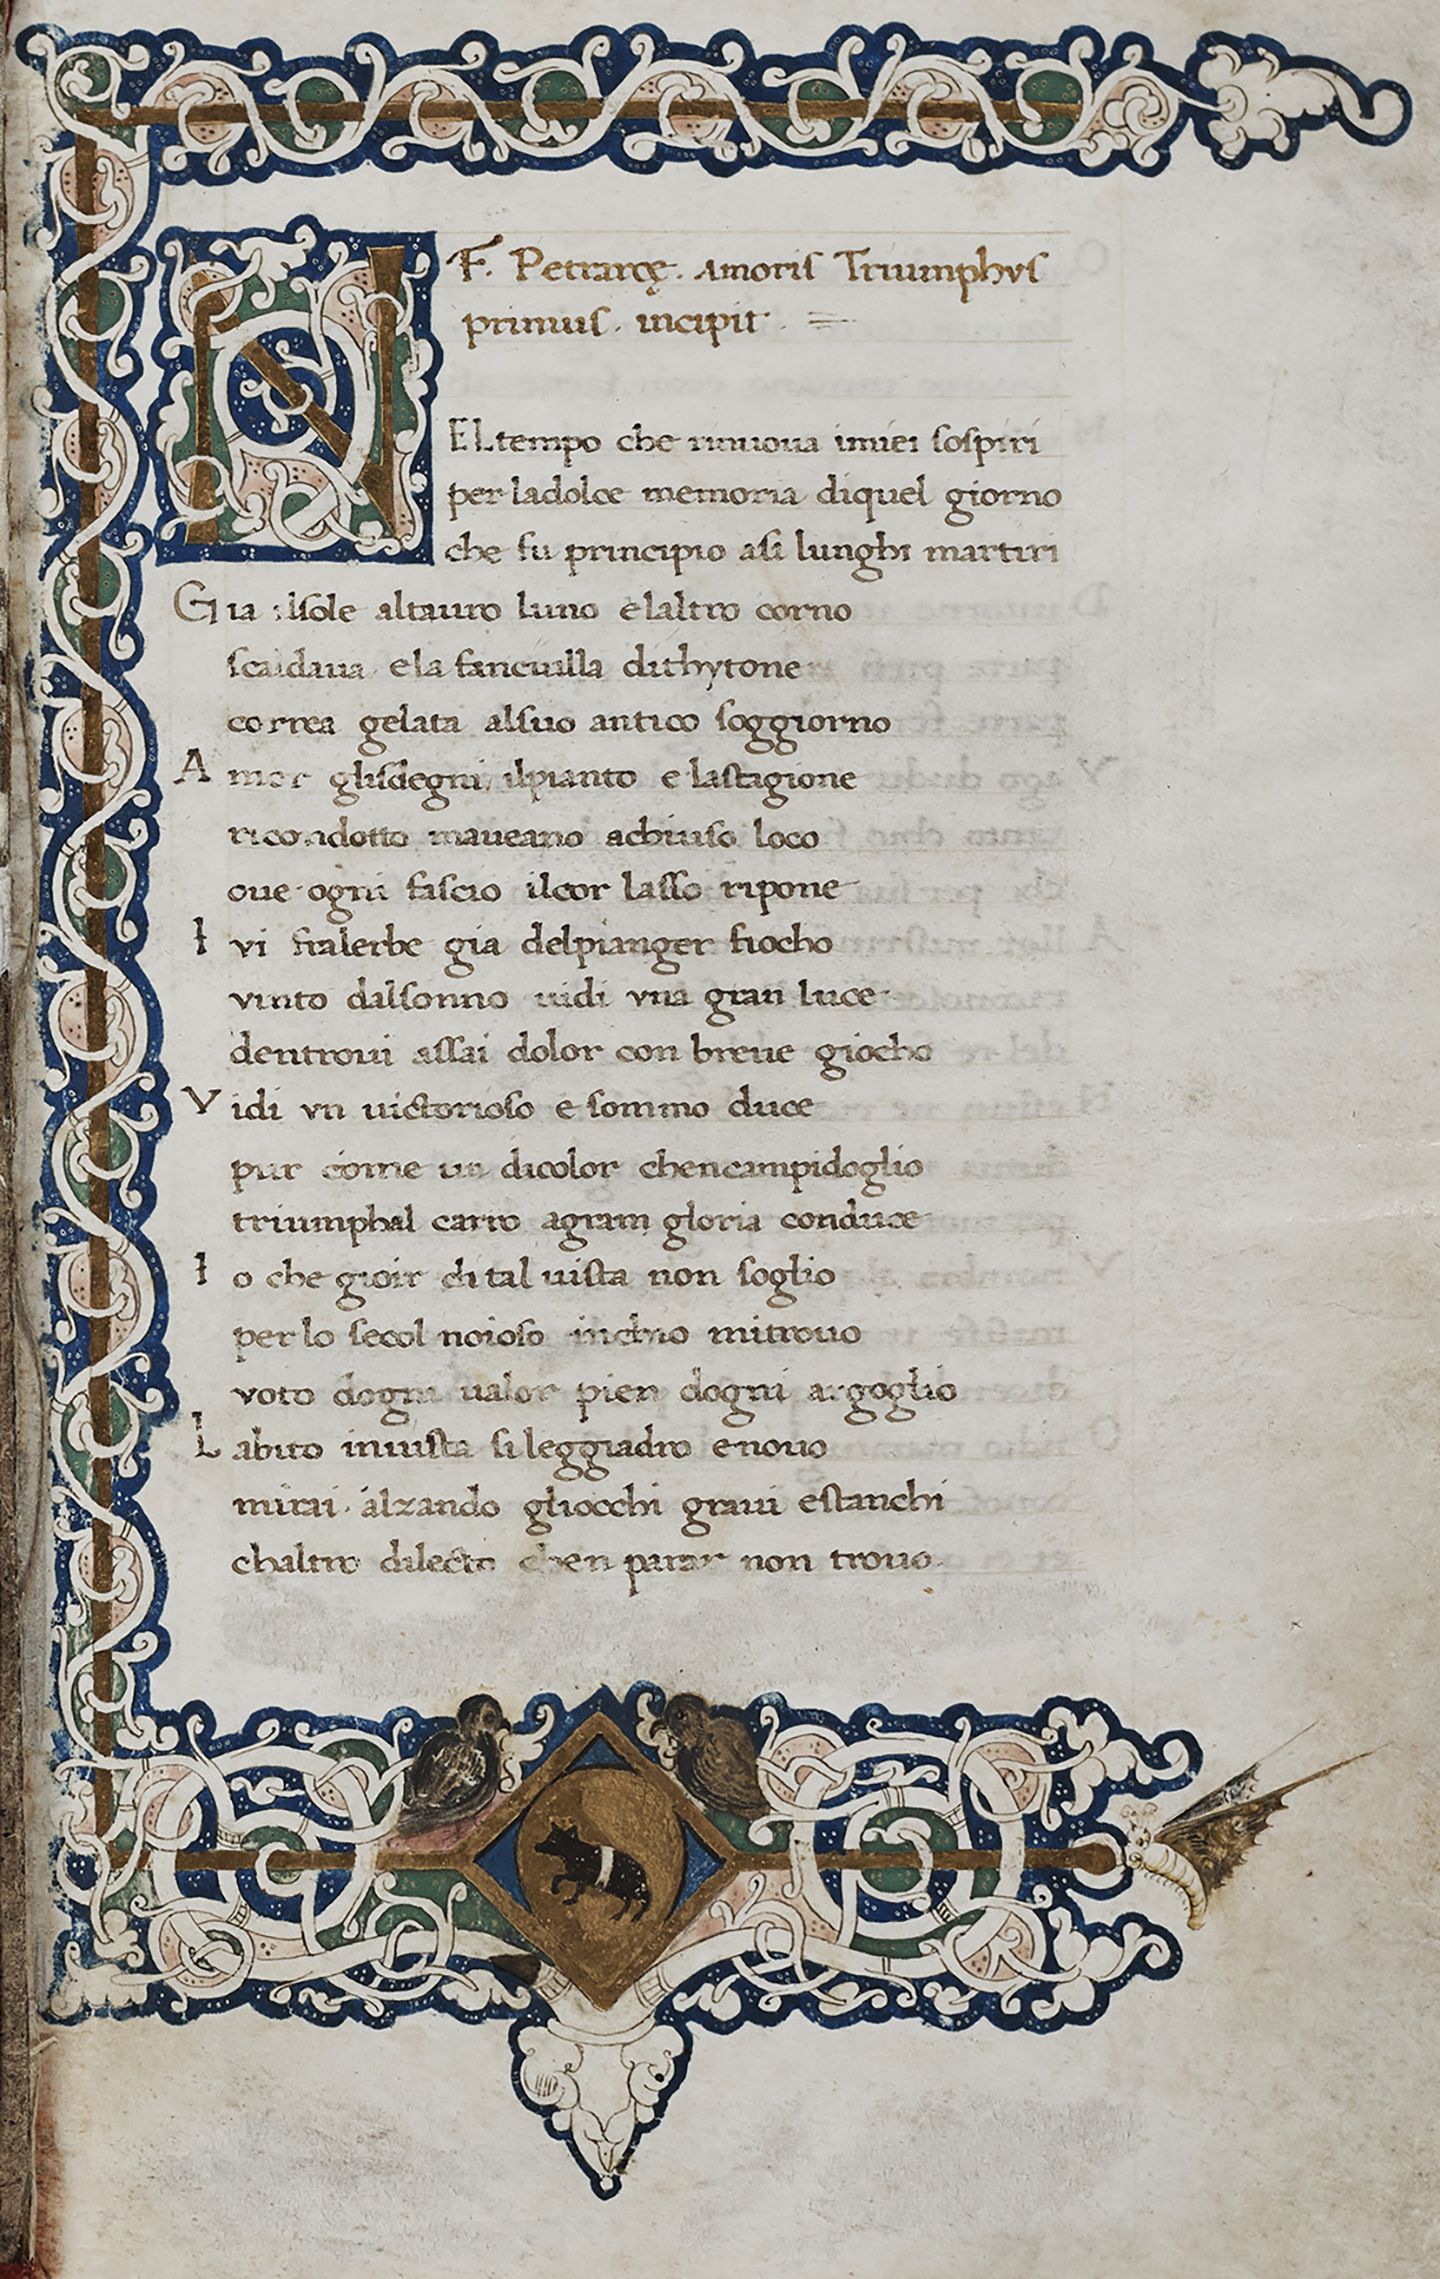 F. Petrarcę. Amoris Triumphus
primus. incipit.
NEL tempo che rinuoua imiei sospiri
per ladolce memoria diquel giorno
che fu principio asi lunghi martiri
Gia ilsole altauro luno elaltro corno
scaldaua ela fanciulla dithytone
correa gelata alsuo antico soggiorno
Amor glisdegni ilpianto e lastagione
ricondotto maueano achiuso loco
oue ogni fascio ilcor lasso ripone
Ivi fralerbe gia delpianger fiocho
vinto dalsonno uidi vna gran luce
dentroui assai dolor con breue giocho
Vidi vn uictorioso e sommo duce
pur come un dicolor chencampidoglio
triumphal carro agram gloria conduce
Io che gioir di tal uista non soglio
per lo secol noioso inchio mitrouo
voto dogni ualor pien dogni argoglio
Labito inuista si leggiadro enouo
mirai. alzando gliocchi graui estanchi
chaltro dilecto chen parar non trouo.